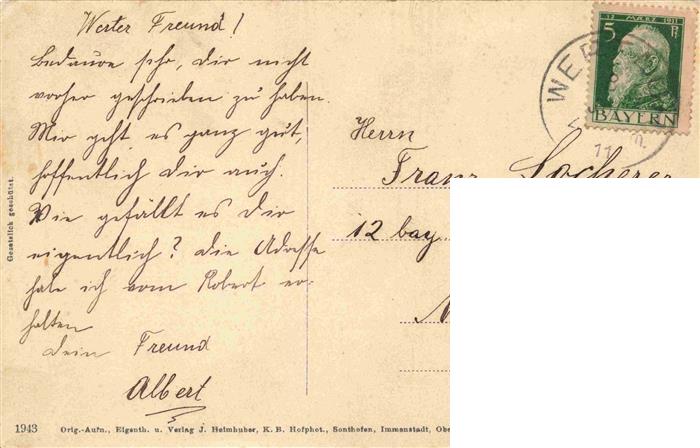 Werter Freund!
Bedaure sehr, dir nicht
vorher geschrieben zu haben.
Mir geht es ganz gut,
hoffentlich dir auch.
Wie gefällt es dir
eigentlich? die Adresse
habe ich vom Robert er-
halten
dein Freund
Albert
Herrn
Franz Locherer
12 bay
12 MAERZ 1911
5 Pf
BAYERN
WER
11
Gesetzlich geschützt.
1943 Orig.-Aufn., Eigenth. u. Verlag J. Heimhuber, K. B. Hofphot., Sonthofen, Immenstadt, Obe